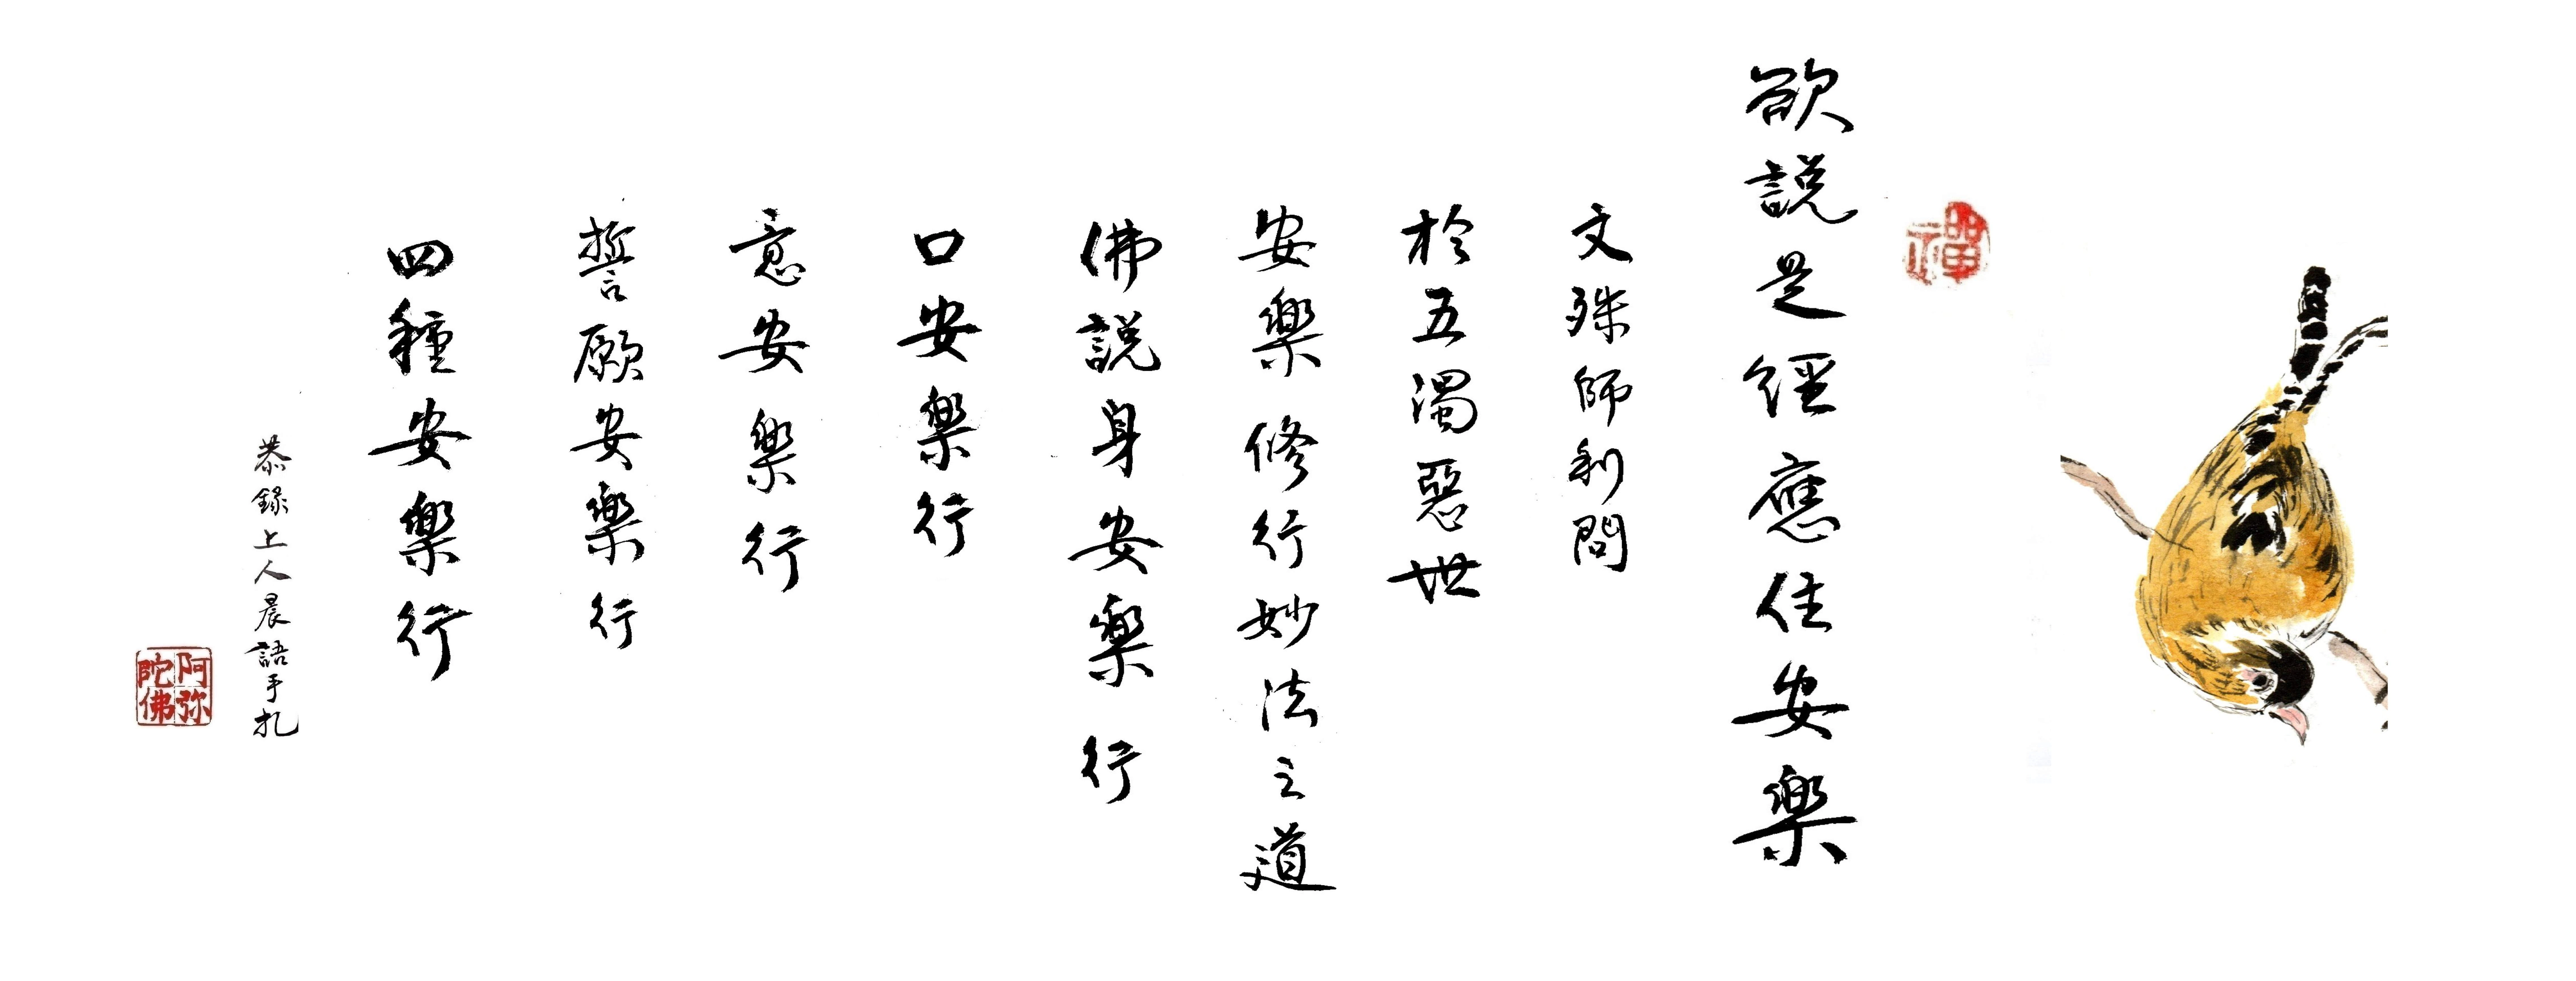 禪
欲説是經應住安樂
文殊師利問
於五濁惡世
安樂修行妙法之道
佛説身安樂行
口安樂行
意安樂行
誓願安樂行
四種安樂行
恭錄上人晨語手札
阿弥陀佛